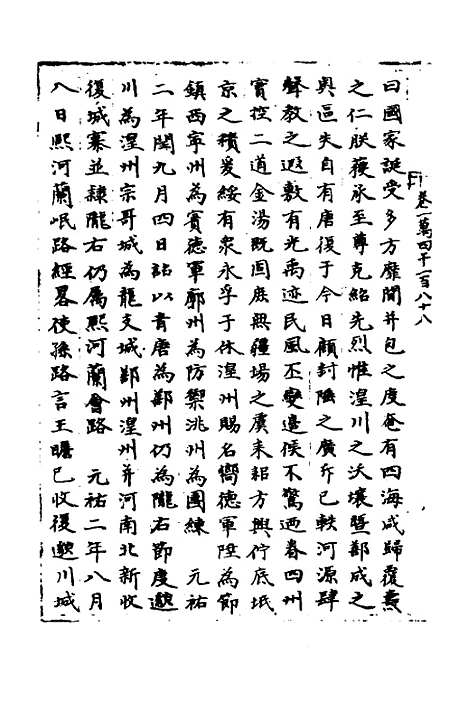 卷一萬四千一百八十八
曰國家誕受多方靡間并包之度奄有四海咸歸覆燾
之仁朕獲承至尊克紹先烈惟湟川之沃壤暨鄯成之
輿區失自有唐復于今日顧封陲之廣斥已軼河源肆
聲教之遐敷有光禹迹民風丕變邊候不驚迺眷四州
實控二道金湯既固庶無疆場之虞耒耜方興佇底坻
京之積爰綏有衆永孚于休湟州賜名嚮德軍陞為節
鎮西寧州為賓德軍廓州為防禦洮州為團練 元祐
二年閏九月四日詔以青唐為鄯州仍為隴右節度邈
川為湟州宗哥城為龍支城鄯州湟州并河南北新收
復城寨並隸隴右仍屬熙河蘭會路 元祐二年八月
八日熙河蘭岷路經畧使孫路言王瞻已收復邈川城